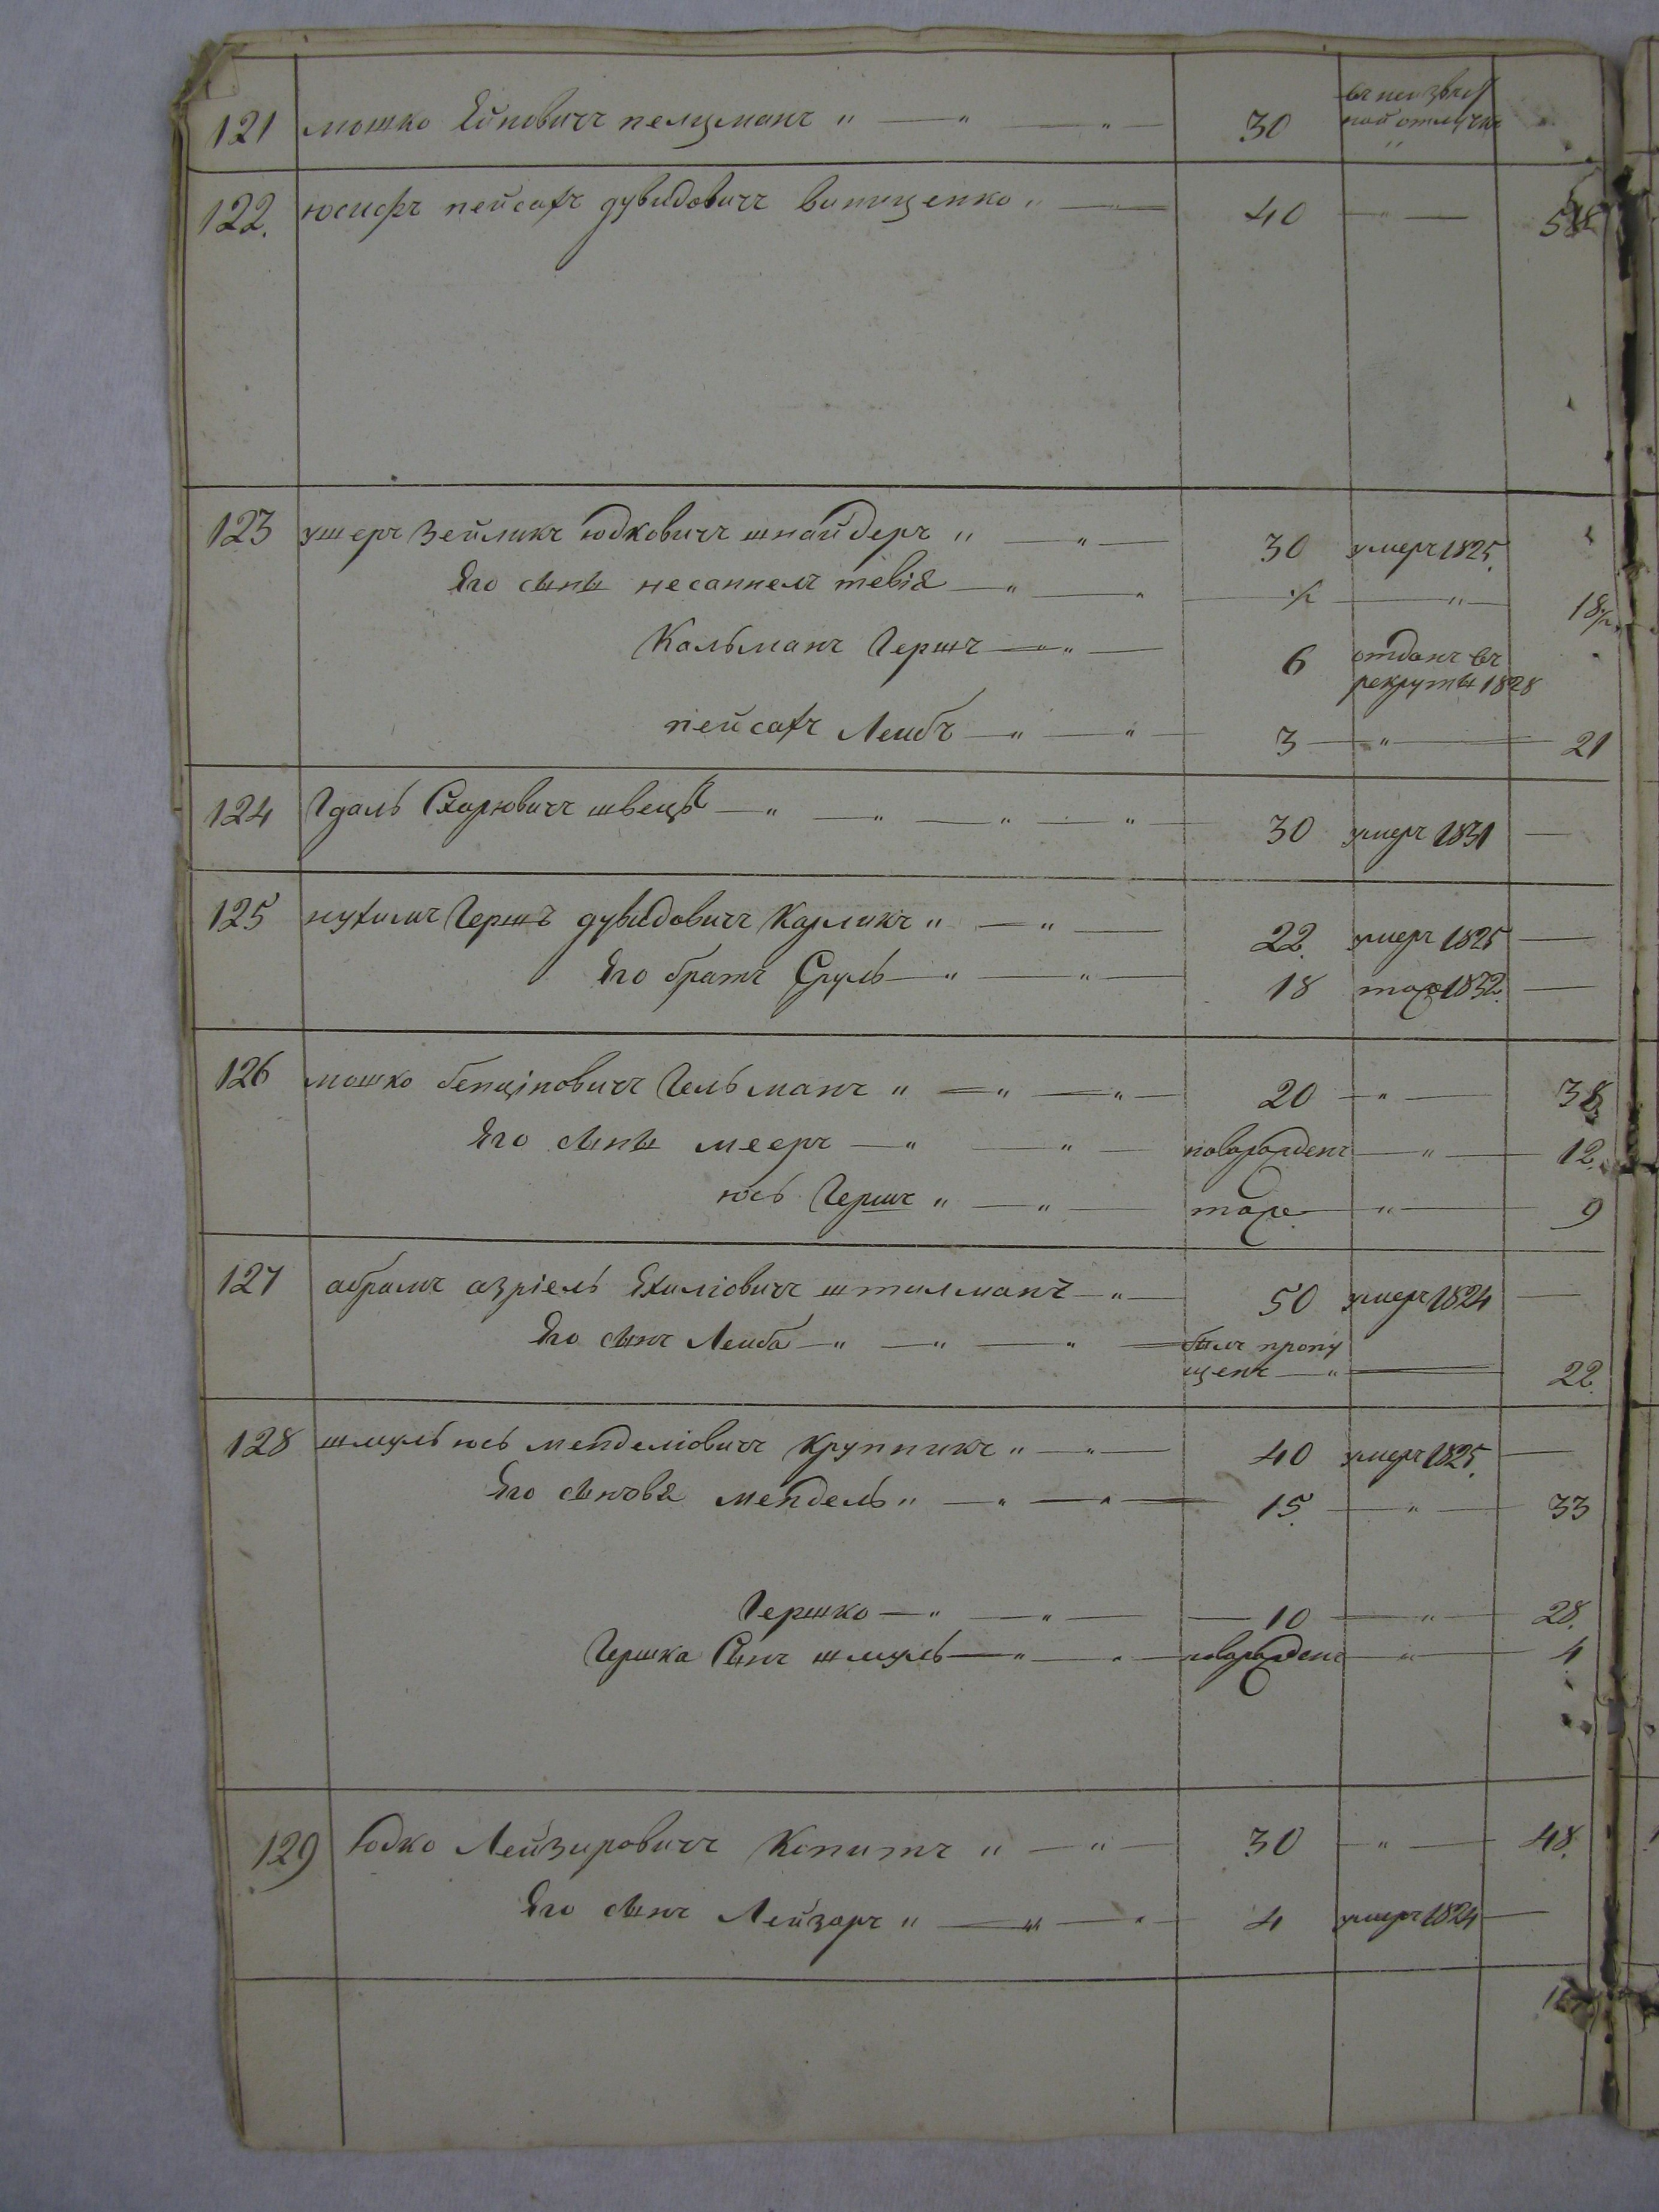 121 мошко Ейновичъ пелцманъ " — " — " — 30 въ неизвѣст
ной отлучке "
122. юсифъ пейсахъ дувидовичъ витценко " — 40 — " — 58
123 ушеръ Зейликъ юдковичъ шнайдеръ " — " — 30 умеръ 1825.
Его сыны несаннелъ тевіе — " — " — ½ — " — 18½
Кальманъ Гершъ — " — 6 отданъ въ
рекруты 1828
пейсахъ Леибъ — " — " — 3 — " — 21
124 Гдаль Схарювичъ швецъ — " — " — " — " — 30 умеръ 1831 —
125 нухимъ Гершъ дувидовичъ Карликъ " — " — 22. умеръ 1825 —
Его братъ Сруль — " — " — 18 тоже 1832. —
126 мошко бенціновичъ Гельманъ " — " — " — 20 — " — 38.
Его сыны мееръ — " — " — новорожденъ — " — 12.
юсь Гершъ " — " — тоже — " — 9
127 абрамъ азріель Ехиліовичъ штилманъ — " — 50 умеръ 1824 —
Его сынъ Леиба — " — " — " — былъ пропу
щенъ — " — 22.
128 шмуль юсь менделіовичъ Крупникъ " — " — 40 умеръ 1825. —
Его сыновя мендель " — " — " — 15. — " — 33
Гершко — " — " — 10 — " — 28.
Гершка Сынъ шмуль — " — " — новорожденъ — " — 4
129 Юдко Лейзировичъ Копитъ " — " — 30 — " — 48.
Его сынъ Лейзоръ " — " — " — 4 умеръ 1824 —